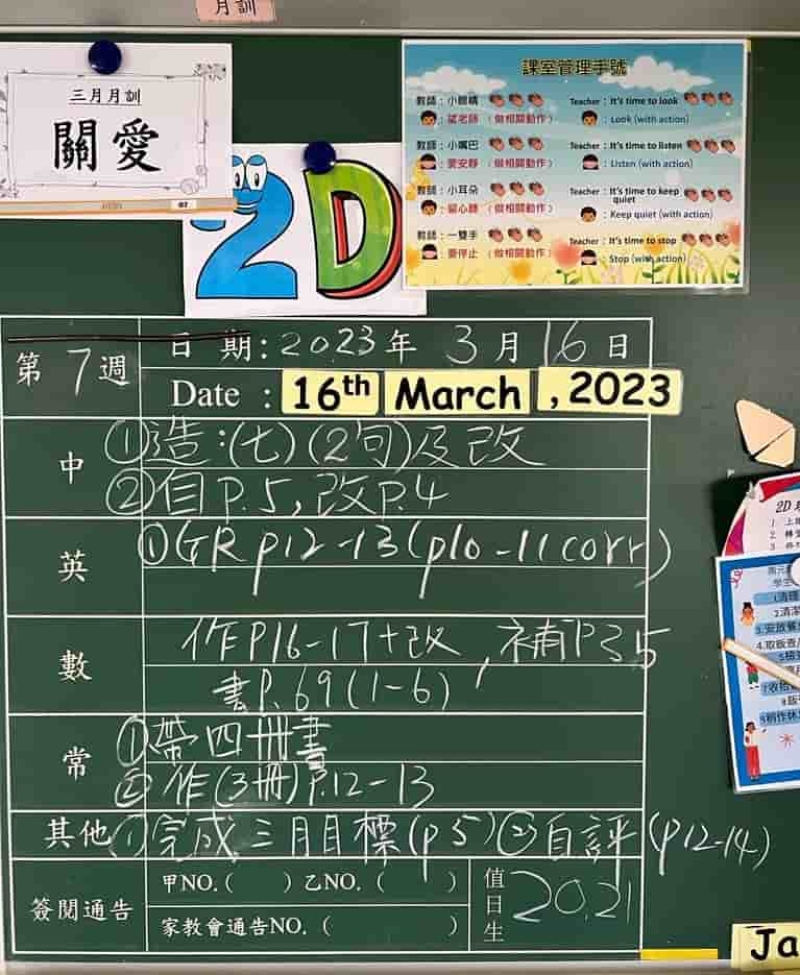 月訓
三月月訓
關愛
2D
課室管理手號
教師：小眼睛
望老師（做相關動作）
Teacher : It's time to look
: Look (with action)
教師：小嘴巴
要安靜（做相關動作）
Teacher : It's time to listen
: Listen (with action)
教師：小耳朵
留心聽（做相關動作）
Teacher : It's time to keep
quiet
: Keep quiet (with action)
教師：一雙手
要停止（做相關動作）
Teacher : It's time to stop
: Stop (with action)
第7週
日 期：2023年 3月 16日
Date : 16th March , 2023
中
①造：(七)(2句)及改
②自P.5，改P.4
英
①GR p12-13(p10-11corr)
數
作P16-17+改，補P35
書P.69(1-6)
常
①帶四冊書
②作(3冊)P.12-13
其他 ①完成三月目標(p5)②自評(p12-14)
簽閱通告
甲NO.( ) 乙NO.( )
家教會通告NO.( )
值日生
20,21
2D
Ja